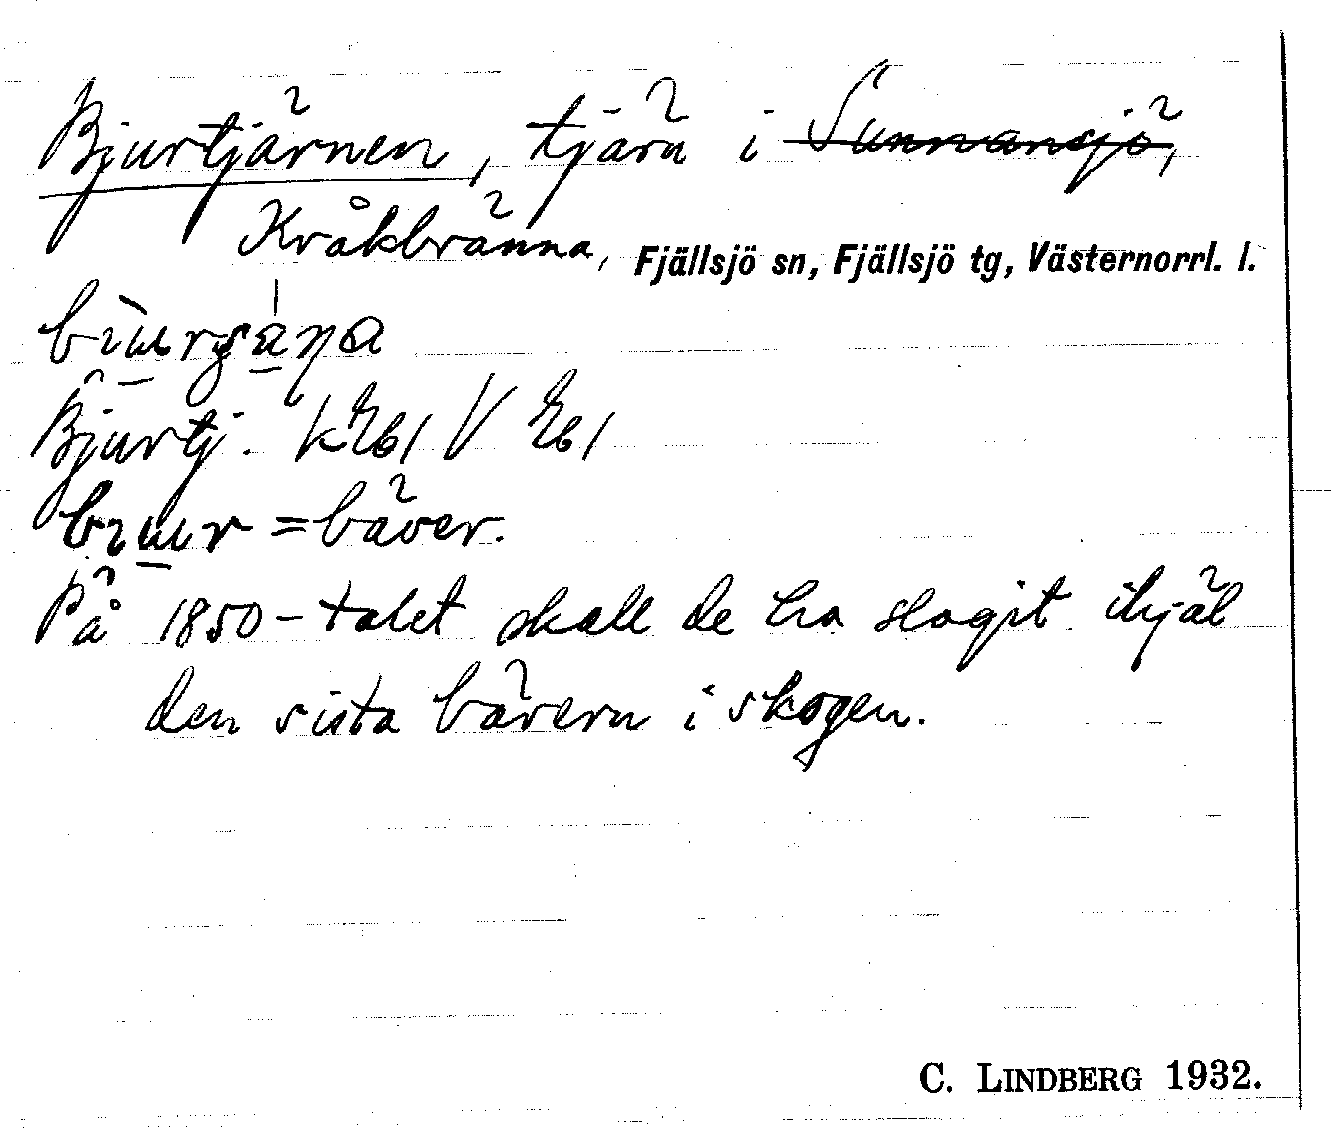 Bjurtjärnen, tjärn i ~~Sunnansjö,~~
Kråkbränna, Fjällsjö sn, Fjällsjö tg, Västernorrl. l.
Bjurtj.
= bäver.
På 1850-talet skall de ha slagit ihjäl
den sista bävern i skogen.
C. LINDBERG 1932.